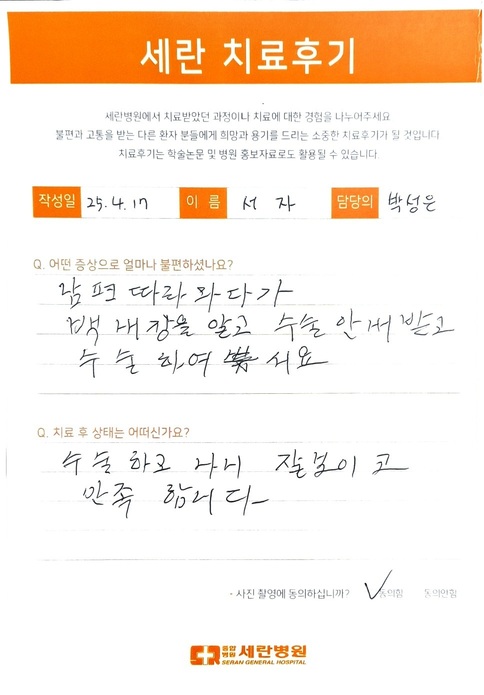 세란 치료후기
세란병원에서 치료받았던 과정이나 치료에 대한 경험을 나누어주세요
불편과 고통을 받는 다른 환자 분들에게 희망과 용기를 드리는 소중한 치료후기가 될 것입니다
치료후기는 학술논문 및 병원 홍보자료로도 활용될 수 있습니다.
작성일 25.4.17 이 름 서 자 담당의 박성은
Q. 어떤 증상으로 얼마나 불편하셨나요?
남편 따라 와다가
백내장을 알고 수술 안내 받고
수술 하여 서요
Q. 치료 후 상태는 어떠신가요?
수술 하고 나니 잘보이고
만족 합니다
- 사진 촬영에 동의하십니까? 동의함 동의안함
종합병원 세란병원
SERAN GENERAL HOSPITAL